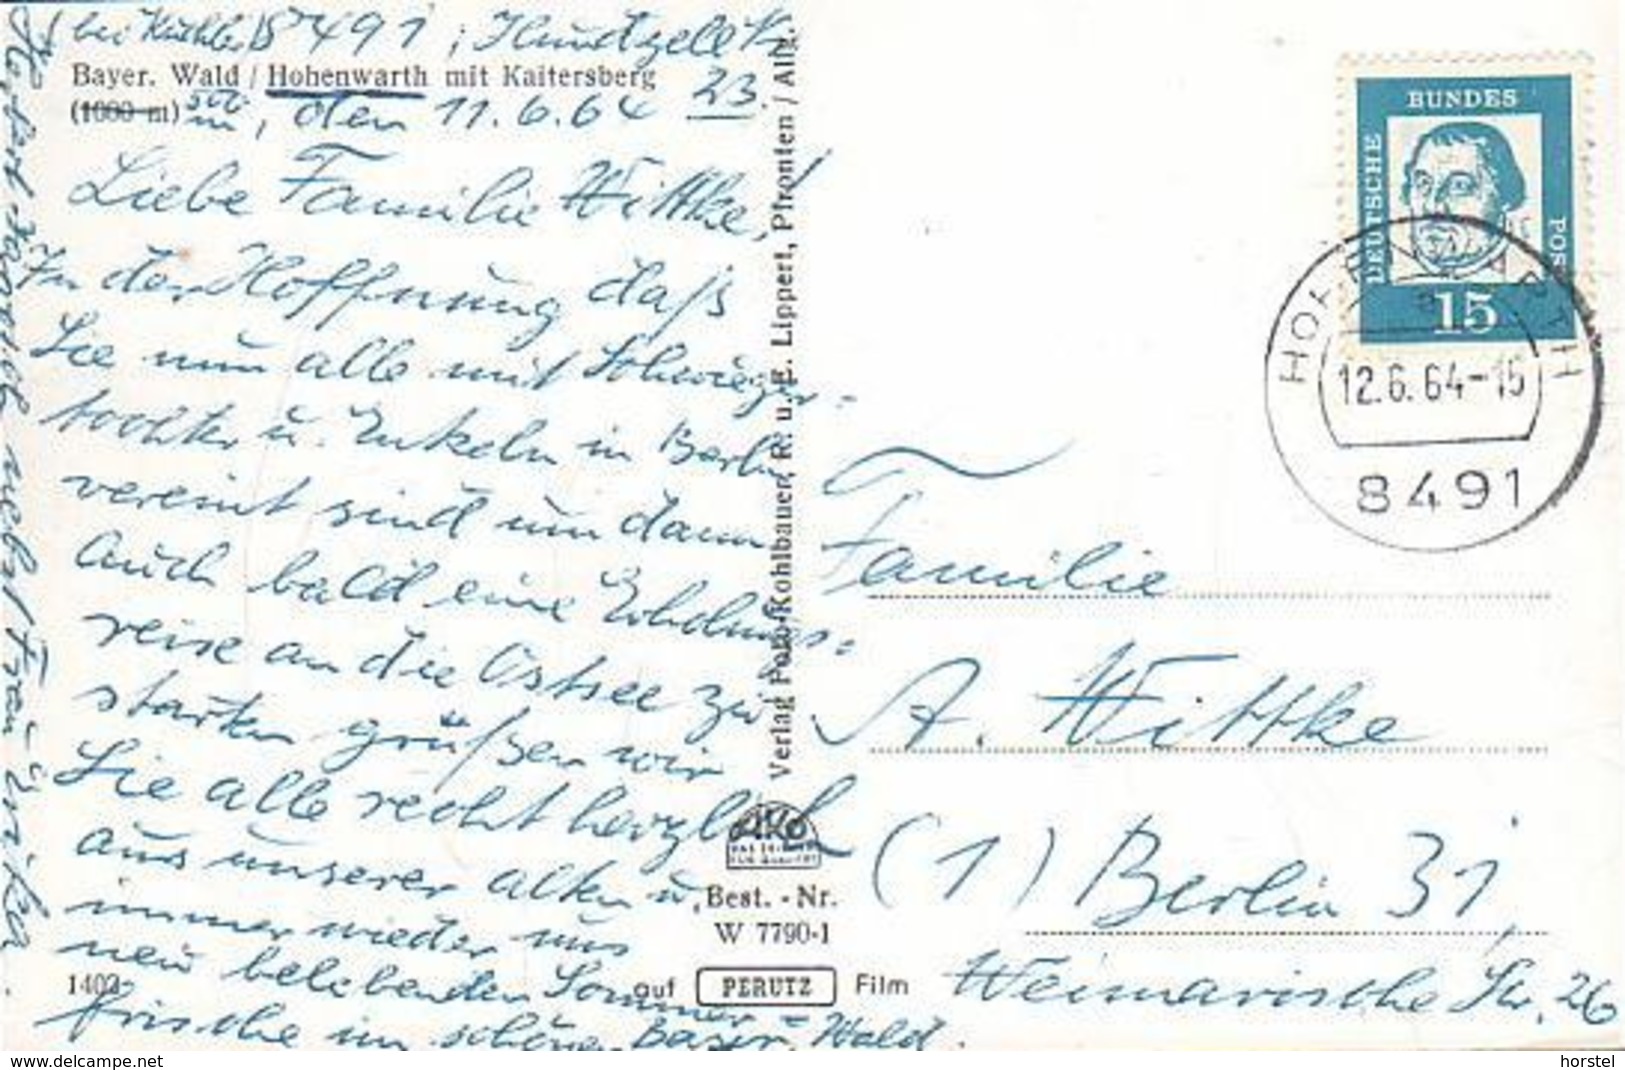 bei Küchler 8491, Hundzell Nr.
Bayer. Wald / Hohenwarth mit Kaitersberg
23.
(1000 m) 500 m, den 11.6.64
Liebe Familie Wittke,
In der Hoffnung daß
Sie nun alle mit Schwieger=
tochter u. Enkeln in Berlin
vereint sind um dann
auch bald eine Erholungs=
reise an die Ostsee zu
starten grüßen wir
Sie alle recht herzlich
aus unserer alten u.
immer wieder uns
neu belebenden Sommer=
frische im schönen Bayr. Wald.
Herbert nebst Frau
Verlag Foto-Kohlbauer, R. u. E. Lippert, Pfronten / Allg.
Best. - Nr.
W 7790-1
1402
auf PERUTZ Film
DEUTSCHE
BUNDES
POST
15
HOHENWARTH
12.6.64-15
8491
Familie
A. Wittke
(1) Berlin 31,
Weimarische Str. 26
horstel
www.delcampe.net